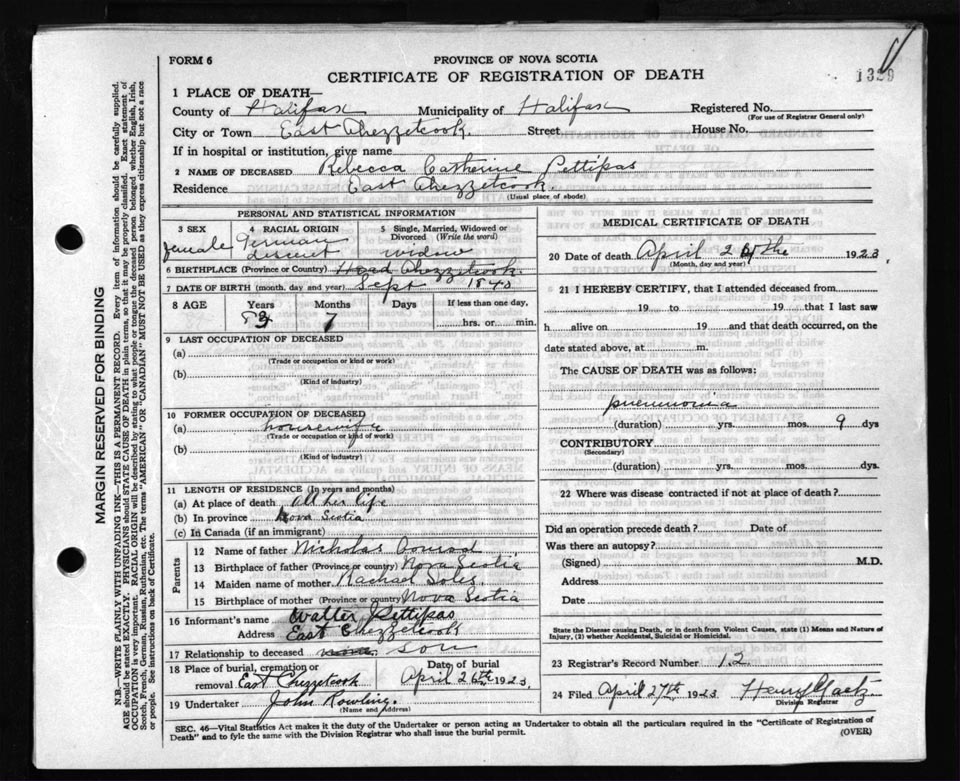 FORM 6
PROVINCE OF NOVA SCOTIA
CERTIFICATE OF REGISTRATION OF DEATH
1329
1 PLACE OF DEATH—
County of Halifax Municipality of Halifax Registered No.
(For use of Registrar General only)
City or Town East Chezzetcook Street House No.
If in hospital or institution, give name
2 NAME OF DECEASED Rebecca Catherine Pettipas
Residence East Chezzetcook.
(Usual place of abode)
PERSONAL AND STATISTICAL INFORMATION
3 SEX female
4 RACIAL ORIGIN German descent
5 Single, Married, Widowed or Divorced (Write the word) widow
6 BIRTHPLACE (Province or Country) Head Chezzetcook.
7 DATE OF BIRTH (month, day and year) Sept 1840
8 AGE Years Months Days If less than one day,
7 hrs. or min.
9 LAST OCCUPATION OF DECEASED
(a)
(Trade or occupation or kind or work)
(b)
(Kind of industry)
10 FORMER OCCUPATION OF DECEASED
(a) housewife
(Trade or occupation or kind of work)
(b)
(Kind of industry)
11 LENGTH OF RESIDENCE (In years and months)
(a) At place of death all her life
(b) In province Nova Scotia
(c) In Canada (if an immigrant)
Parents
12 Name of father Nicholas Conrad
13 Birthplace of father (Province or country) Nova Scotia
14 Maiden name of mother Rachael Soles
15 Birthplace of mother (Province or country) Nova Scotia
16 Informant's name Walter Pettipas
Address East Chezzetcook
17 Relationship to deceased son
18 Place of burial, cremation or removal East Chezzetcook Date of burial April 26th 1923.
19 Undertaker John Rowling.
(Name and Address)
MEDICAL CERTIFICATE OF DEATH
20 Date of death April the 1923
(Month, day and year)
21 I HEREBY CERTIFY, that I attended deceased from
19 to 19 that I last saw
h alive on 19 and that death occurred, on the
date stated above, at m.
The CAUSE OF DEATH was as follows:
pneumonia
(duration) yrs. mos. 9 dys
CONTRIBUTORY
(Secondary)
(duration) yrs. mos. dys.
22 Where was disease contracted if not at place of death?
Did an operation precede death? Date of
Was there an autopsy?
(Signed) M.D.
Address
Date
State the Disease causing Death, or in death from Violent Causes, state (1) Means and Nature of
Injury, (2) whether Accidental, Suicidal or Homicidal.
23 Registrar's Record Number 12
24 Filed April 27th 1923 Henry Gaetz
Division Registrar
SEC. 46—Vital Statistics Act makes it the duty of the Undertaker or person acting as Undertaker to obtain all the particulars required in the "Certificate of Registration of
Death" and to fyle the same with the Division Registrar who shall issue the burial permit.
(OVER)
MARGIN RESERVED FOR BINDING
N.B.—WRITE PLAINLY WITH UNFADING INK—THIS IS A PERMANENT RECORD. Every item of information should be carefully supplied.
AGE should be stated EXACTLY. PHYSICIANS should STATE CAUSE OF DEATH in plain terms, so that it may be properly classified. Exact statement of
OCCUPATION is very important. RACIAL ORIGIN will be described by stating to what people or tongue the deceased person belonged whether English, Irish,
Scotch, French, German, Russian, Ruthenian, etc. The terms "AMERICAN" or "CANADIAN" MUST NOT BE USED as they express citizenship but not a race
or people. See instructions on back of Certificate.